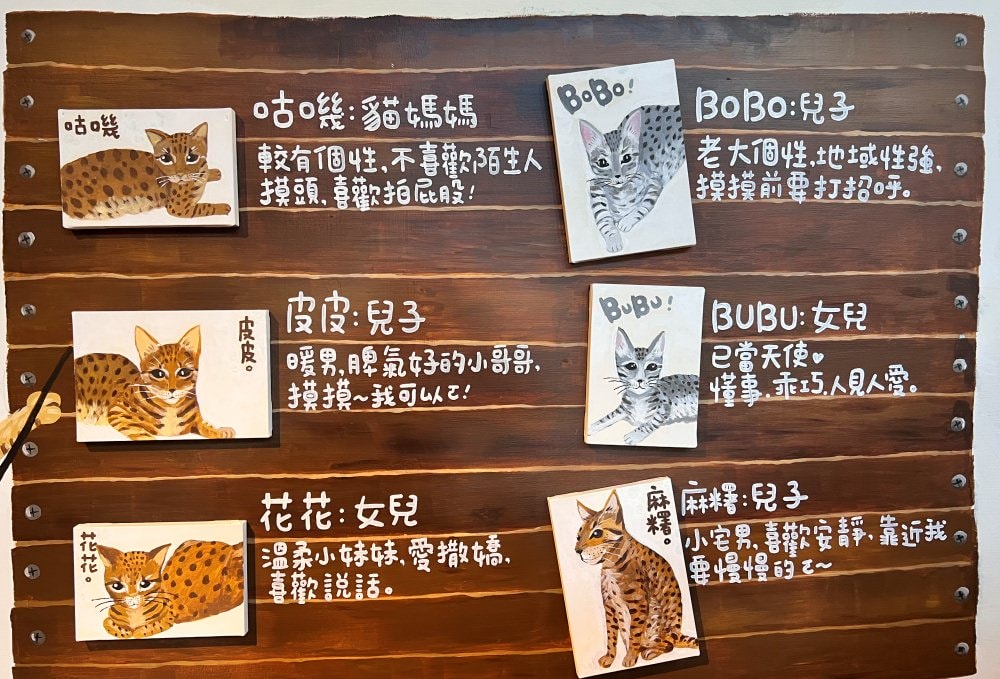 咕嘰
咕嘰:貓媽媽
較有個性,不喜歡陌生人
摸頭,喜歡拍屁股!
BOBO!
BOBO:兒子
老大個性,地域性強,
摸摸前要打招呼。
皮皮。
皮皮:兒子
暖男,脾氣好的小哥哥,
摸摸~我可以ㄛ!
BUBU!
BUBU:女兒
已當天使♥
懂事.乖巧.人見人愛。
花花。
花花:女兒
溫柔小妹妹,愛撒嬌,
喜歡說話。
麻糬。
麻糬:兒子
小宅男,喜歡安靜,靠近我
要慢慢的ㄛ~